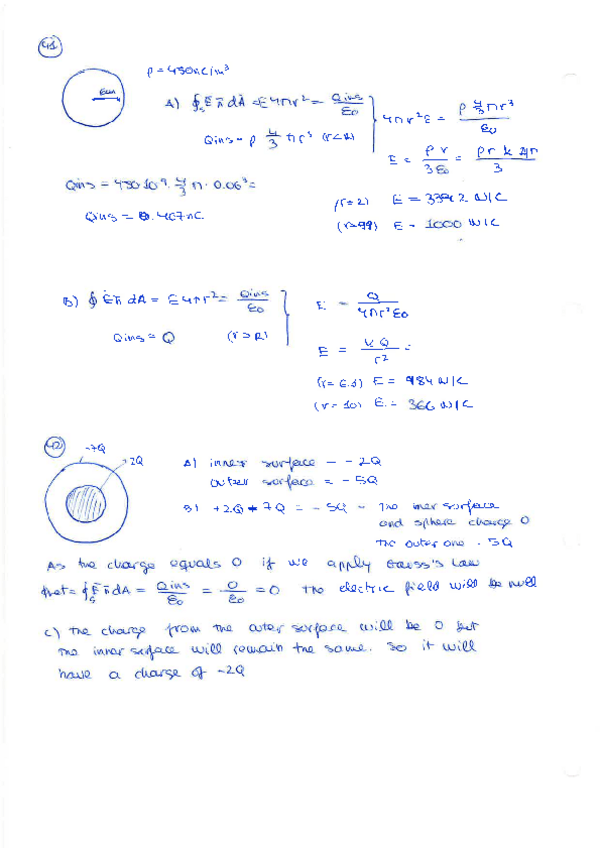 41
6cm
ρ = 450nC/m³
A) ∮s E n dA = E 4πr² = Qins/ε0
Qins = ρ 4/3 πr³ (r<R)
4πr²E = ρ 4/3 πr³ / ε0
E = ρ r / 3ε0 = ρ r k 4π / 3
Qins = 450·10⁻⁹ · 4/3 π · 0.06³ =
Qins = 0.407nC
(r=2) E = 339.2 N/C
E = 1000 N/C
B) ∮ E n dA = E 4πr² = Qins/ε0
Qins = Q (r>R)
E = Q / 4πr²ε0
E = k Q / r² =
(r= 6.1) E = 984 N/C
(r= 10) E = 366 N/C
42
-7Q
2Q
A) inner surface = -2Q
outer surface = -5Q
B) +2Q + 7Q = -5Q - The iner surface
and sphere charge 0
The outer one - 5Q
As the charge equals 0 if we apply Gauss's Law
Φnet = ∮s E n dA = Qins/ε0 = 0/ε0 = 0 The electric field will be null
C) The charge from the outer surface will be 0 but
the inner surface will remain the same. So it will
have a charge of -2Q